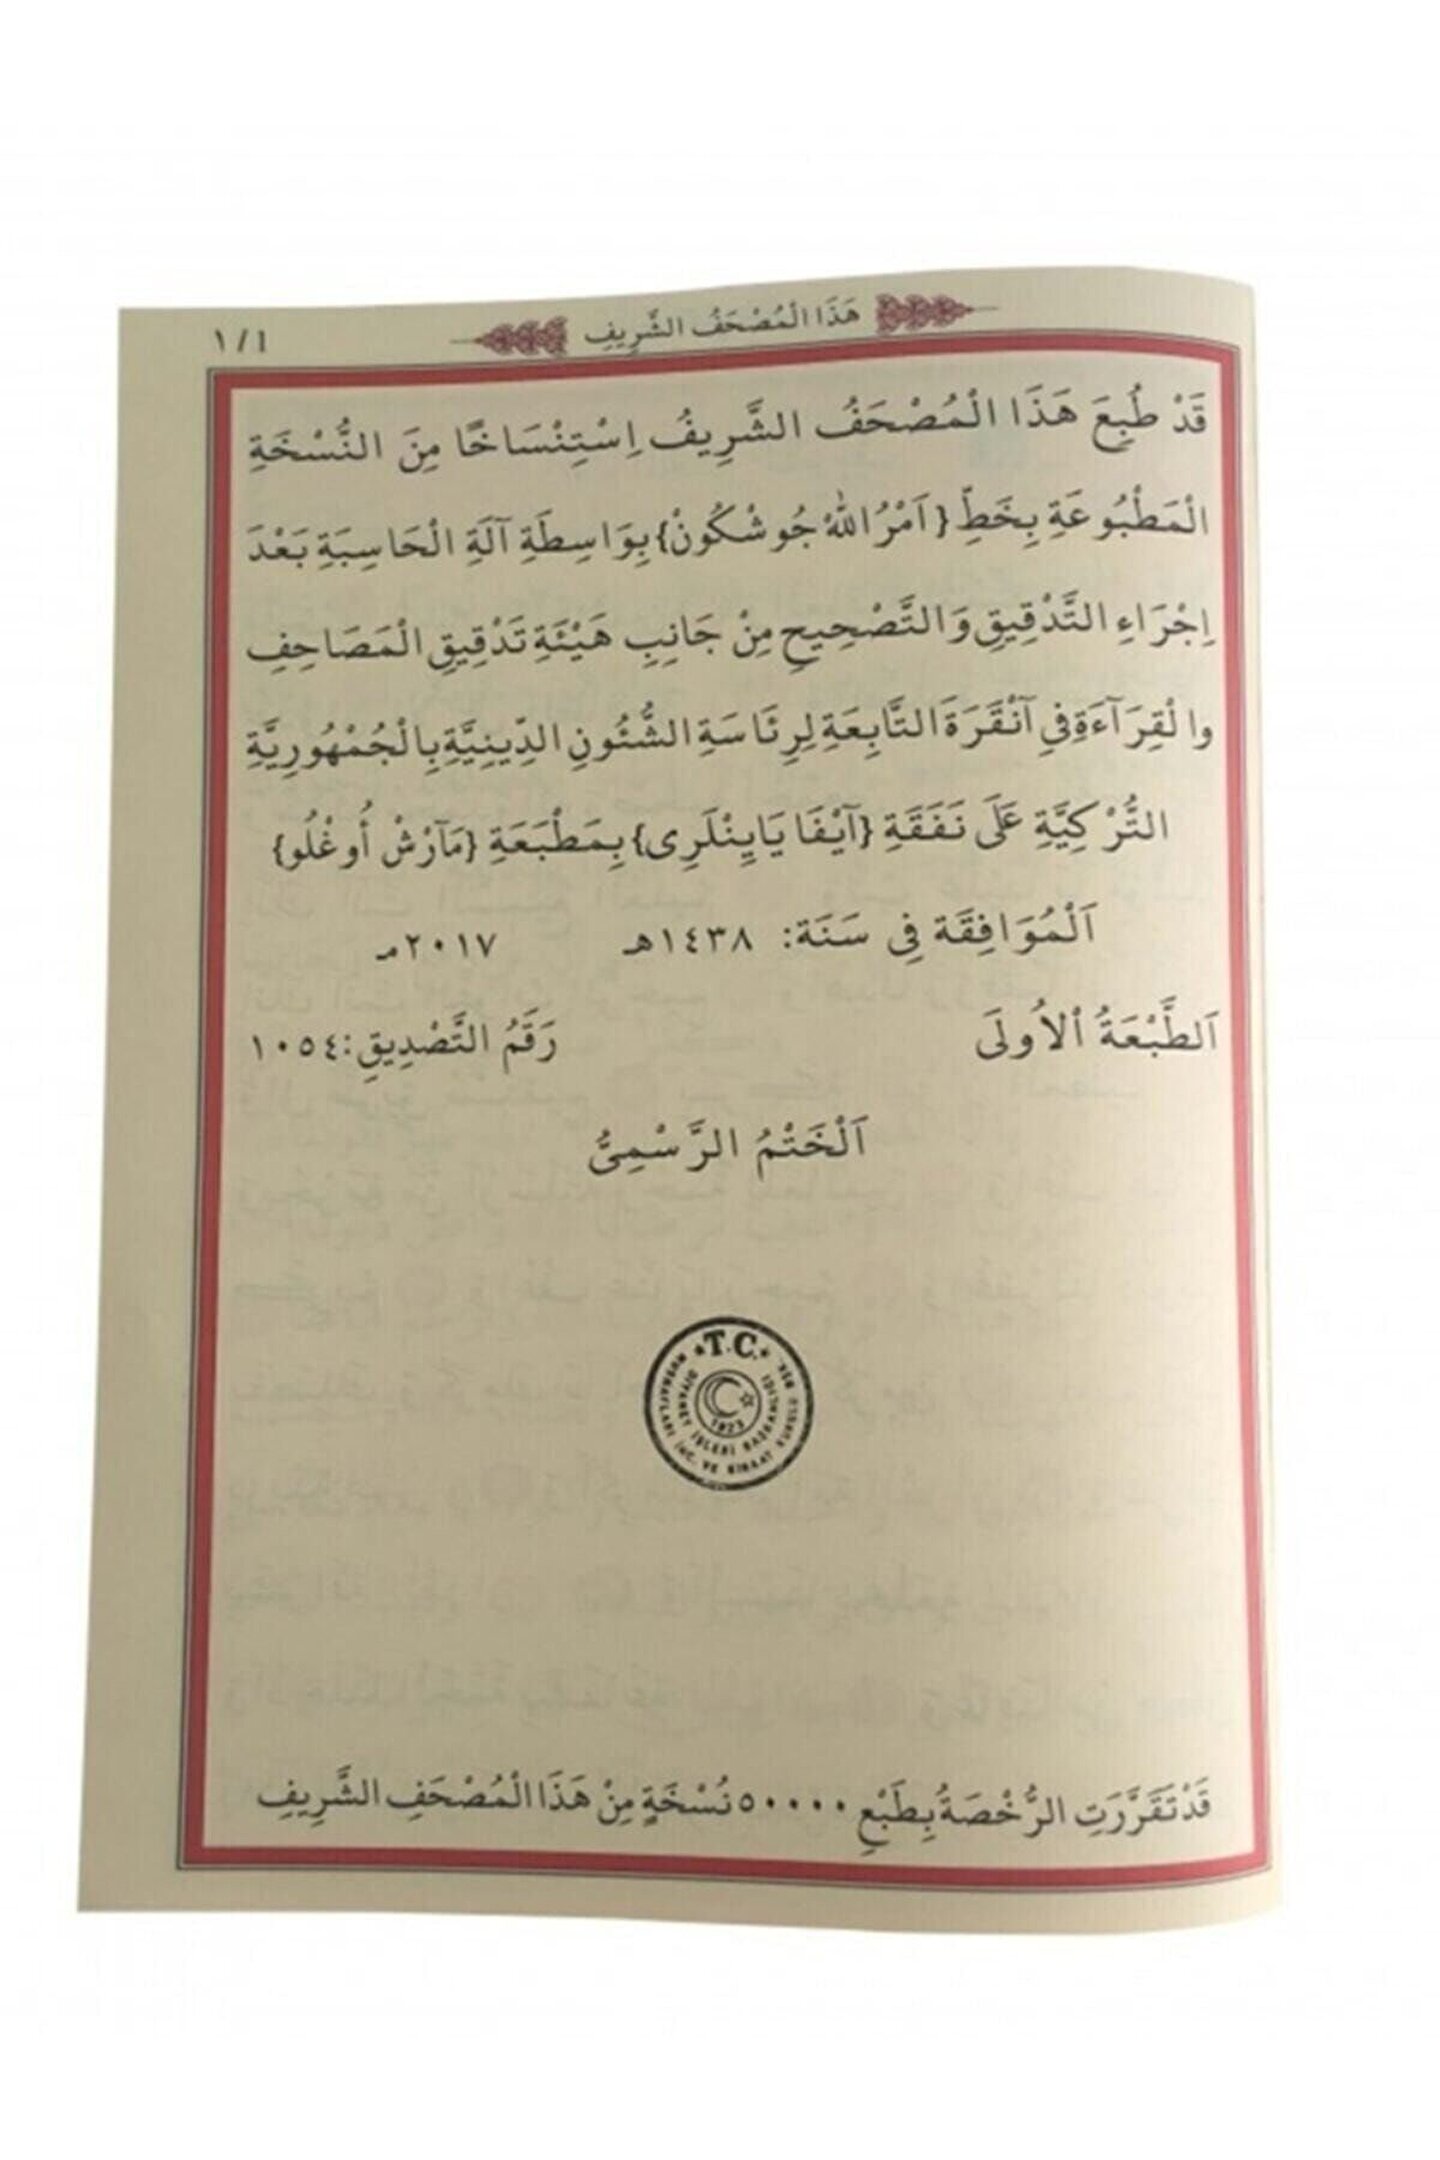 هَذَا الْمُصْحَفُ الشَّرِيفِ
١/١
قَدْ طُبِعَ هَذَا الْمُصْحَفُ الشَّرِيفُ اِسْتِنْسَاخًا مِنَ النُّسْخَةِ
الْمَطْبُوعَةِ بِخَطِّ {اَمْرُ اللّٰهْ جُوشْكُونْ} بِوَاسِطَةِ آلَةِ الْحَاسِبَةِ بَعْدَ
اِجْرَاءِ التَّدْقِيقِ وَالتَّصْحِيحِ مِنْ جَانِبِ هَيْئَةِ تَدْقِيقِ الْمَصَاحِفِ
والْقِرَآءَةِ فِي آنْقَرَةَ التَّابِعَةِ لِرِئَاسَةِ الشُّئُونِ الدِّينِيَّةِ بِالْجُمْهُورِيَّةِ
التُّرْكِيَّةِ عَلَى نَفَقَةِ {آيْفَا يَايِنْلَرِى} بِمَطْبَعَةِ {مَآرْشْ أُوغْلُو}
اَلْمُوَافِقَة فِى سَنَة: ١٤٣٨هـ ٢٠١٧مـ
اَلطَّبْعَةُ الْاُولَى رَقَمُ التَّصْدِيقِ: ١٠٥٤
اَلْخَتْمُ الرَّسْمِىُّ
*T.C.*
DİYANET İŞLERİ BAŞKANLIĞI
MUSHAFLARI İNC. VE KIRAAT KURULU BŞK.
1923
قَدْ تَقَرَّرَتِ الرُّخْصَةُ بِطَبْعِ ٥٠٠٠٠ نُسْخَةٍ مِنْ هَذَا الْمُصْحَفِ الشَّرِيفِ